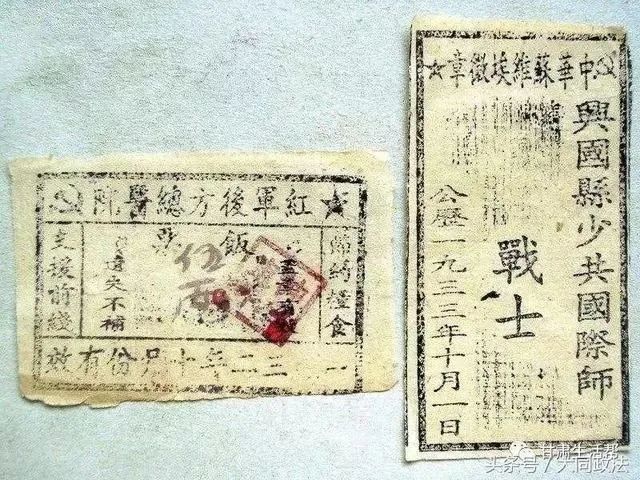 紅軍後方總醫院
節約糧食
飯票
伍兩
遺失不補
支援前綫
一 三二年十月份有效
中華蘇維埃徽章
興國縣少共國際師
戰士
公歷一九三三年十月一日
甘肃生活帮
头条号/大同政法